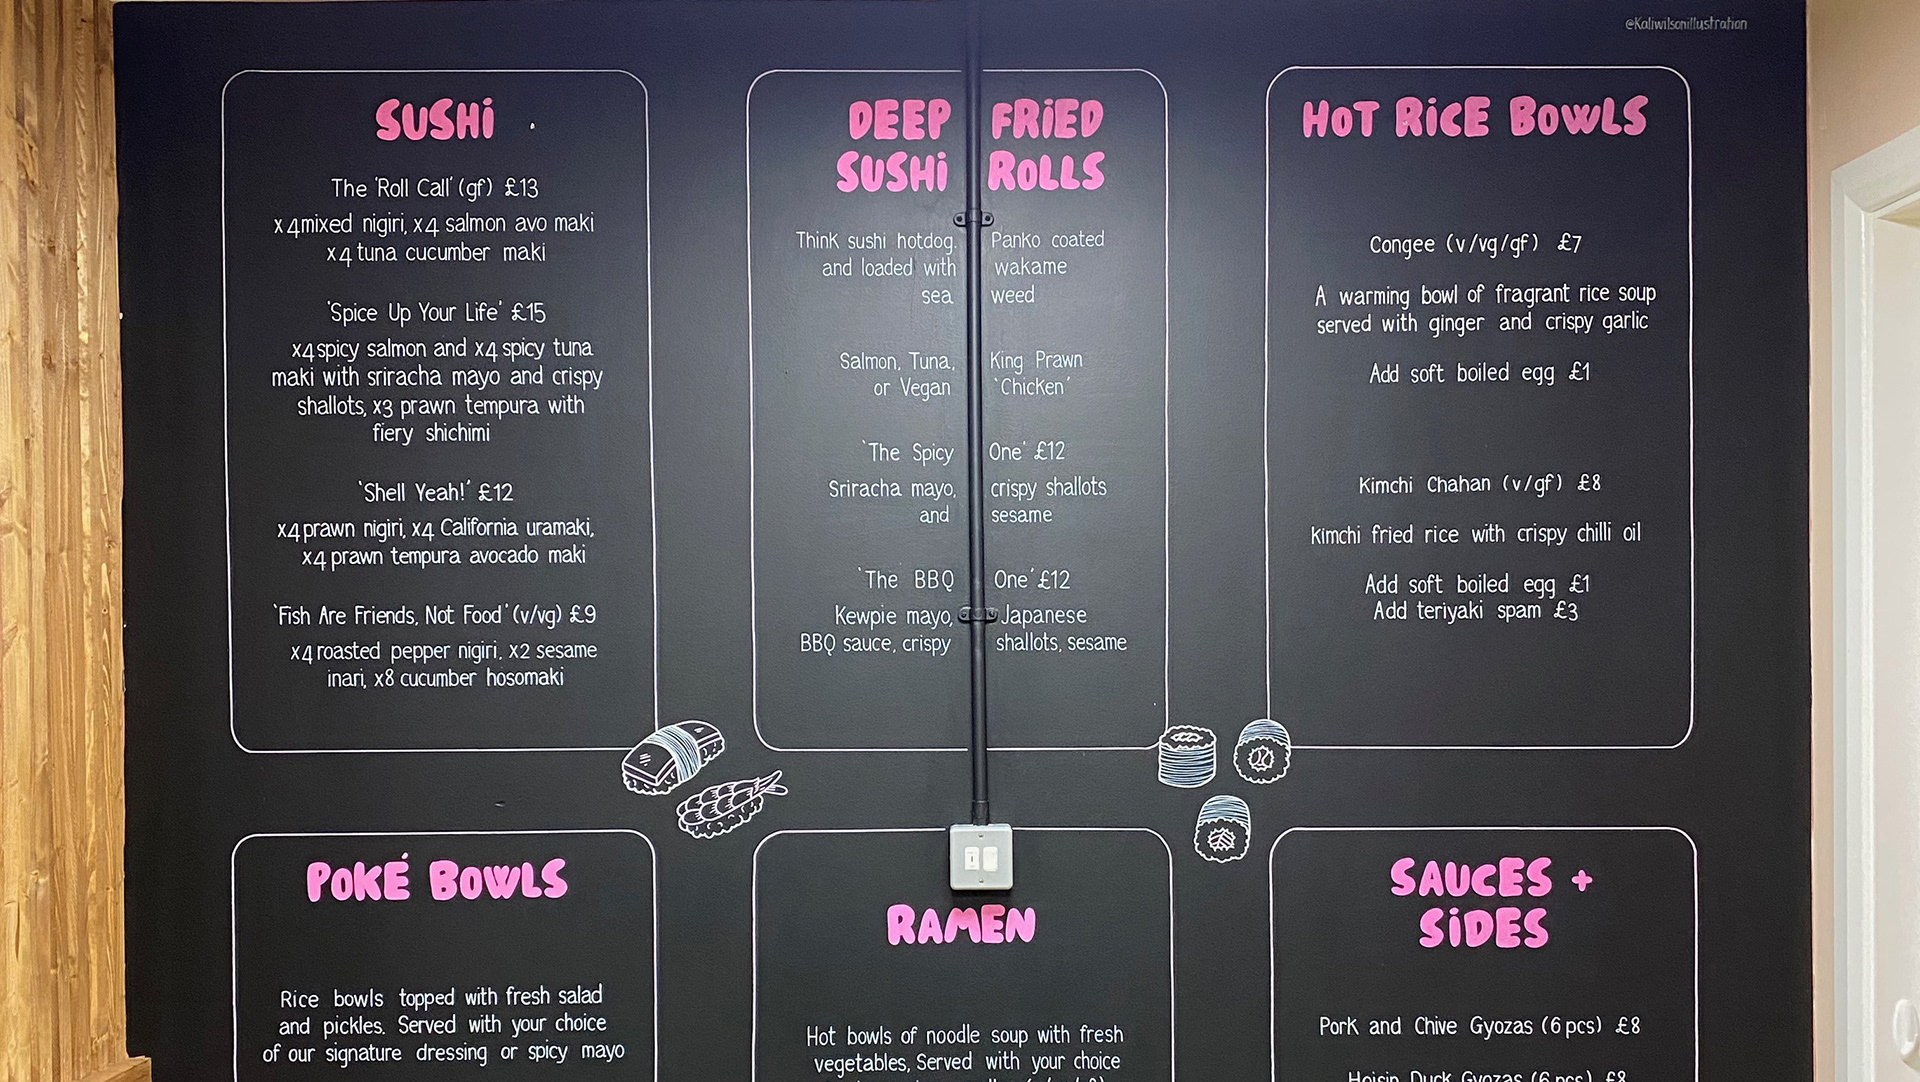 @Kaliwilsonillustration
SUSHi
The 'Roll Call' (gf) £13
x4 mixed nigiri, x4 salmon avo maki
x4 tuna cucumber maki
'Spice Up Your Life' £15
x4 spicy salmon and x4 spicy tuna
maki with sriracha mayo and crispy
shallots, x3 prawn tempura with
fiery shichimi
'Shell Yeah!' £12
x4 prawn nigiri, x4 California uramaki,
x4 prawn tempura avocado maki
'Fish Are Friends, Not Food' (v/vg) £9
x4 roasted pepper nigiri, x2 sesame
inari, x8 cucumber hosomaki
DEEP FRiED
SUSHi ROLLS
Think sushi hotdog. Panko coated
and loaded with wakame
sea weed
Salmon, Tuna, King Prawn
or Vegan 'Chicken'
'The Spicy One' £12
Sriracha mayo, crispy shallots
and sesame
'The BBQ One' £12
Kewpie mayo, Japanese
BBQ sauce, crispy shallots, sesame
HOT RiCE BOWLS
Congee (v/vg/gf) £7
A warming bowl of fragrant rice soup
served with ginger and crispy garlic
Add soft boiled egg £1
Kimchi Chahan (v/gf) £8
Kimchi fried rice with crispy chilli oil
Add soft boiled egg £1
Add teriyaki spam £3
POKÉ BOWLS
Rice bowls topped with fresh salad
and pickles. Served with your choice
of our signature dressing or spicy mayo
RAMEN
Hot bowls of noodle soup with fresh
vegetables, Served with your choice
SAUCES +
SiDES
Pork and Chive Gyozas (6 pcs) £8
Hoisin Duck Gyozas (6 pcs) £8